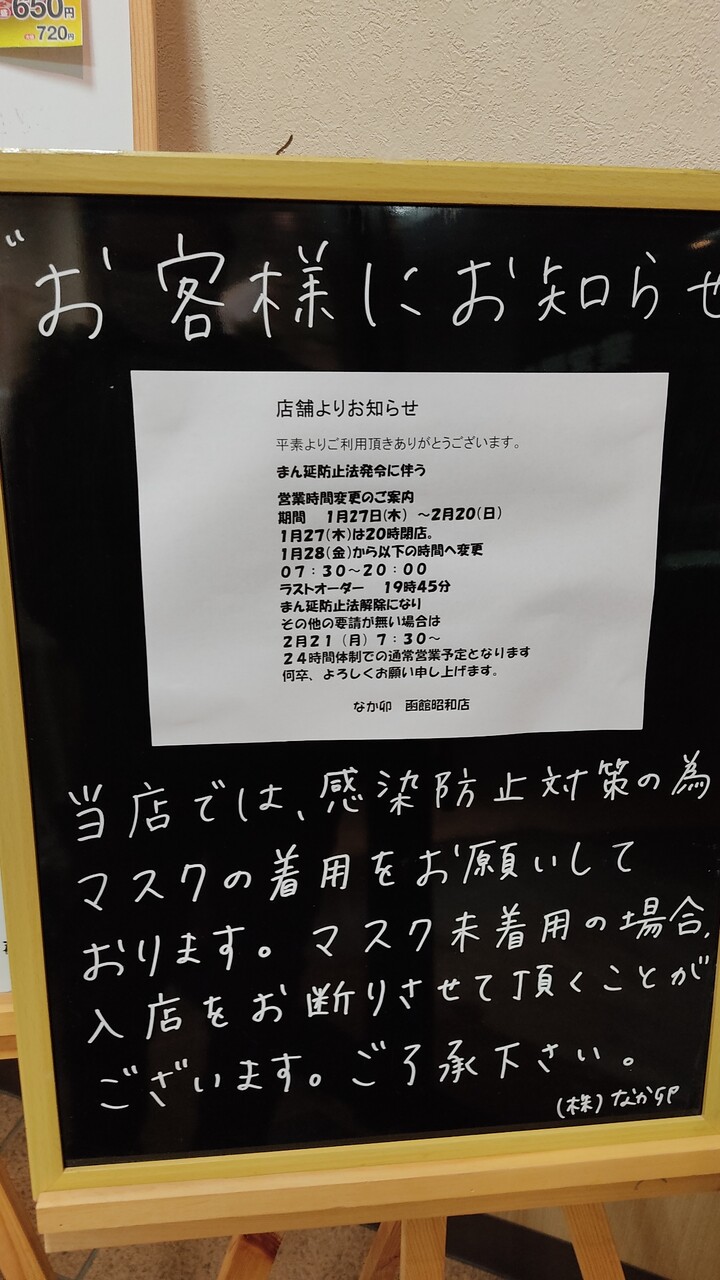 650円
720円
お客様にお知らせ
店舗よりお知らせ
平素よりご利用頂きありがとうございます。
まん延防止法発令に伴う
営業時間変更のご案内
期間　1月27日(木)　～2月20(日)
1月27(木)は20時閉店。
1月28(金)から以下の時間へ変更
07：30～20：00
ラストオーダー　19時45分
まん延防止法解除になり
その他の要請が無い場合は
2月21（月）7：30～
24時間体制での通常営業予定となります
何卒、よろしくお願い申し上げます。
なか卯　函館昭和店
当店では、感染防止対策の為
マスクの着用をお願いして
おります。マスク未着用の場合、
入店をお断りさせて頂くことが
ございます。ご了承下さい。
(株)なか卯